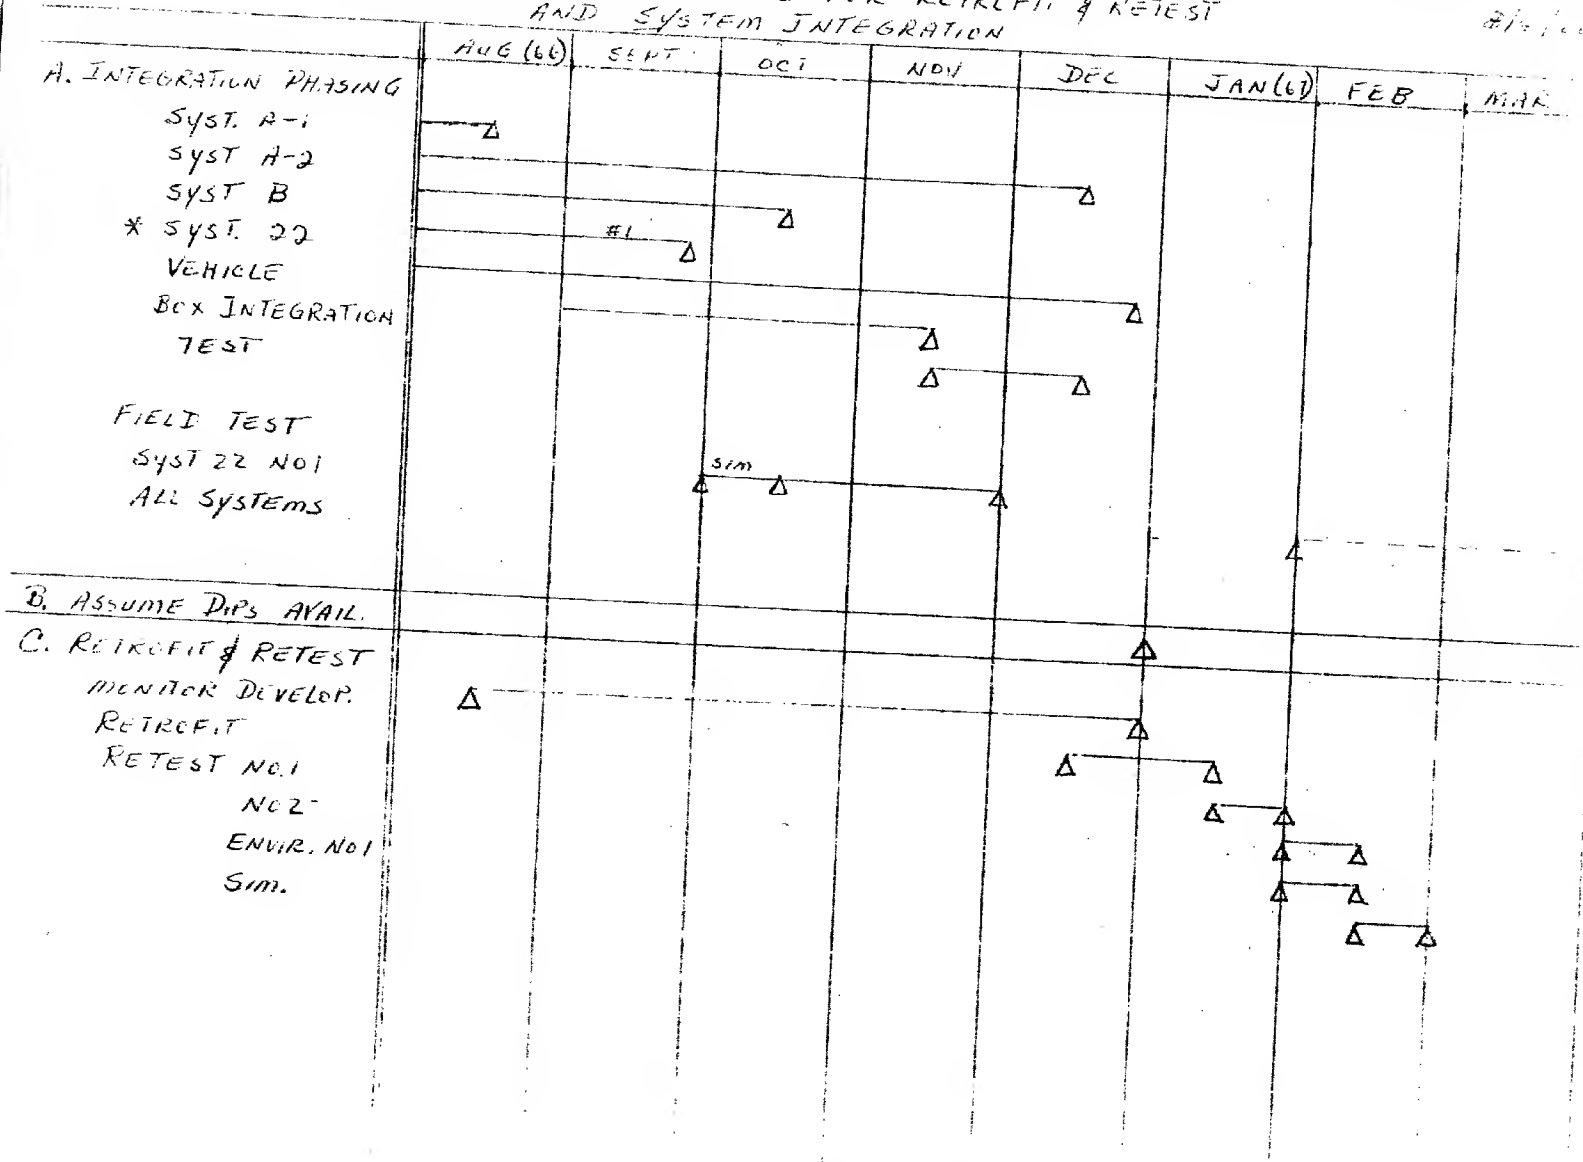 FOR RETROFIT & RETEST
AND SYSTEM INTEGRATION
AUG (66) SEPT OCT NOV DEC JAN (67) FEB MAR
A. INTEGRATION PHASING
SYST. A-1
SYST A-2
SYST B
* SYST. 22 #1
VEHICLE
BOX INTEGRATION
TEST
FIELD TEST
SYST 22 NO1 SIM
ALL SYSTEMS
B. ASSUME DIPS AVAIL.
C. RETROFIT & RETEST
MONITOR DEVELOP.
RETROFIT
RETEST NO.1
NO2
ENVIR. NO1
SIM.